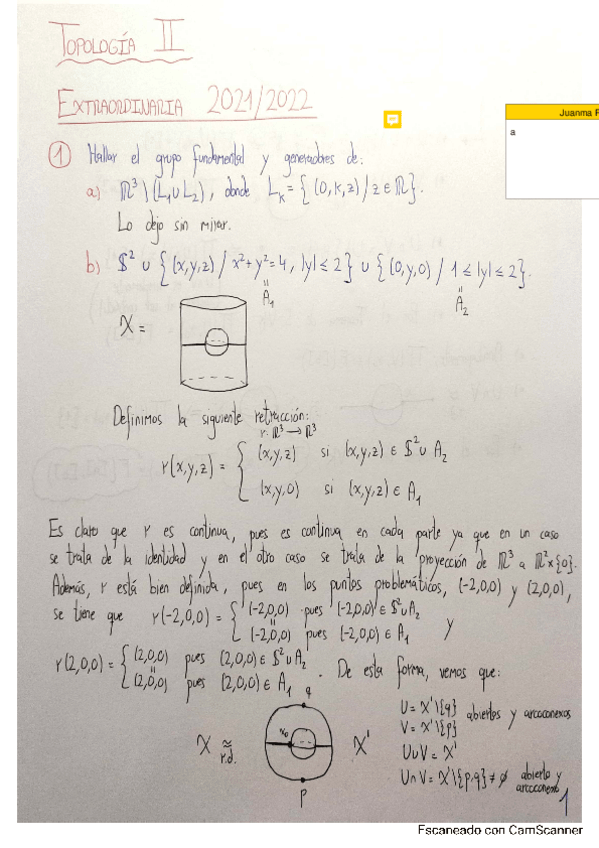 TOPOLOGÍA II
EXTRAORDINARIA 2021/2022
Juanma F
a
① Hallar el grupo fundamental y generadores de:
a) ℝ³ \ (L₁ ∪ L₂), donde L_K = { (0, K, z) / z ∈ ℝ }.
Lo dejo sin mirar.
b) $² ∪ { (x,y,z) / x²+y²=4, |y| ≤ 2 } ∪ { (0,y,0) / 1 ≤ |y| ≤ 2 }.
= A₁
= A₂
X =
Definimos la siguiente retracción:
r: ℝ³ → ℝ³
r(x,y,z) = { (x,y,z) si (x,y,z) ∈ $² ∪ A₂
(x,y,0) si (x,y,z) ∈ A₁
Es claro que r es continua, pues es continua en cada parte ya que en un caso
se trata de la identidad y en el otro caso se trata de la proyección de ℝ³ a ℝ²×{0}.
Además, r está bien definida, pues en los puntos problemáticos, (-2,0,0) y (2,0,0),
se tiene que r(-2,0,0) = { (-2,0,0) pues (-2,0,0) ∈ $² ∪ A₂
= (-2,0,0) pues (-2,0,0) ∈ A₁ y
r(2,0,0) = { (2,0,0) pues (2,0,0) ∈ $² ∪ A₂
= (2,0,0) pues (2,0,0) ∈ A₁ . De esta forma, vemos que:
q
X ≅ r.d. x₀ X'
p
U = X' \ {q} abiertos y arcoconexos
V = X' \ {p}
U ∪ V = X'
U ∩ V = X' \ {p,q} ≠ ∅ abierto y arcoconexo
1
Escaneado con CamScanner